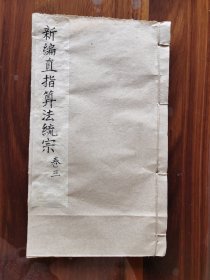 新编直指算法统宗 卷三